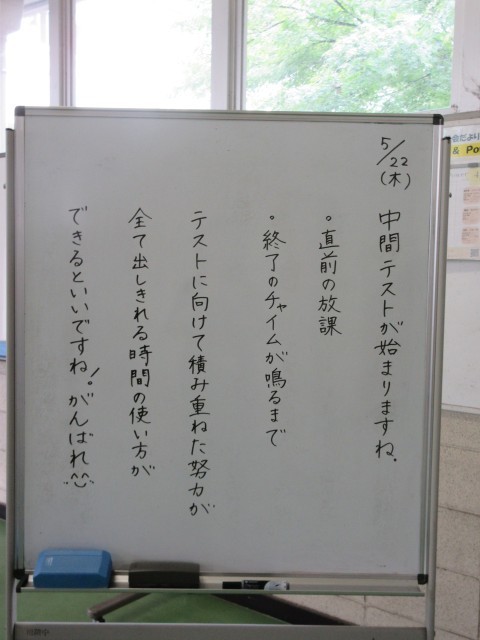 5/22
(木)
中間テストが始まりますね.
。直前の放課
。終了のチャイムが鳴るまで
テストに向けて積み重ねた努力が
全て出しきれる時間の使い方が
できるといいですね!。がんばれ^^
会だより
& Po